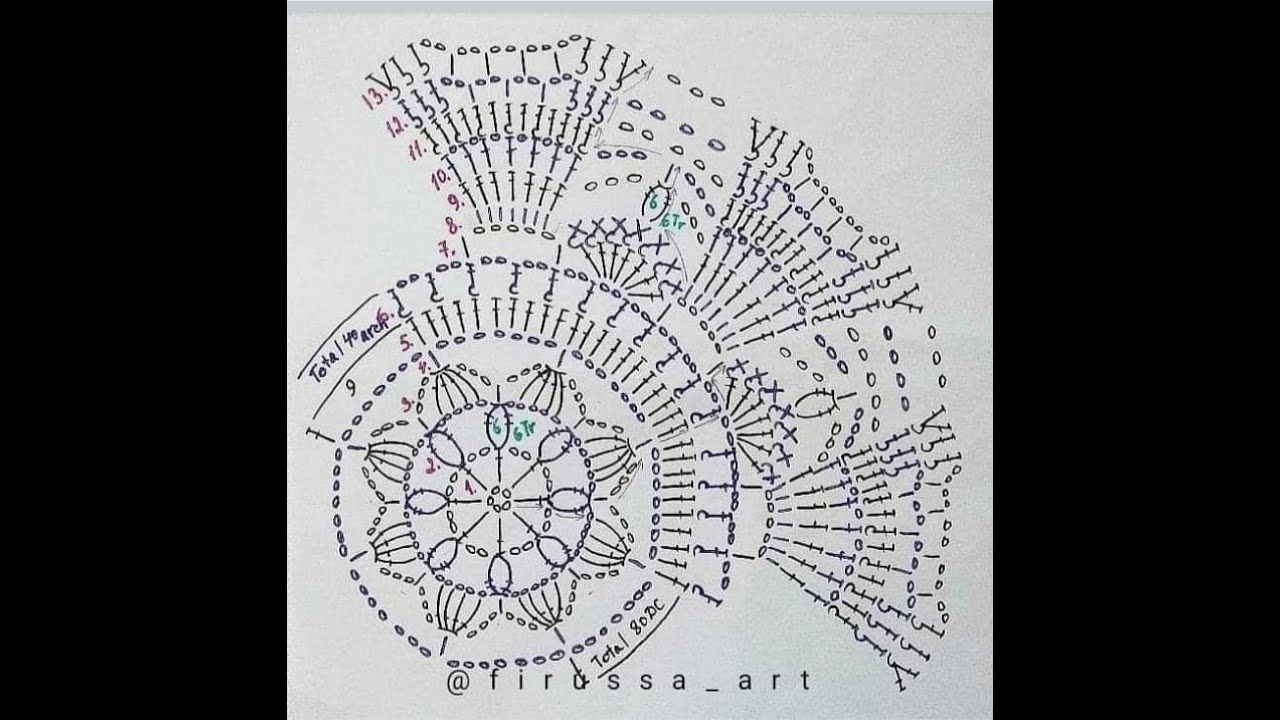 13.
12.
11.
10.
9.
8.
7.
6.
5.
4.
3.
2.
1.
6
6Tr
6
6Tr
Total 40 arch
9
Total 80DC
@firussa_art